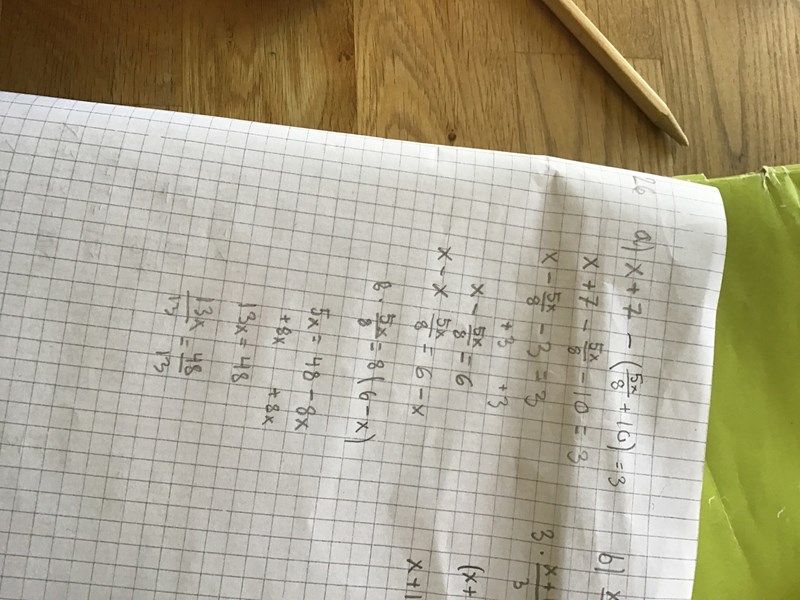 26 a) x + 7 - (5x/8 + 10) = 3
x + 7 - 5x/8 - 10 = 3
x - 5x/8 - 3 = 3
+3 +3
x - 5x/8 = 6
x - x 5x/8 = 6 - x
8 · 5x/8 = 8(6 - x)
5x = 48 - 8x
+8x +8x
13x = 48
13x/13 = 48/13
b)
3 · x+
3
(x+
x+1